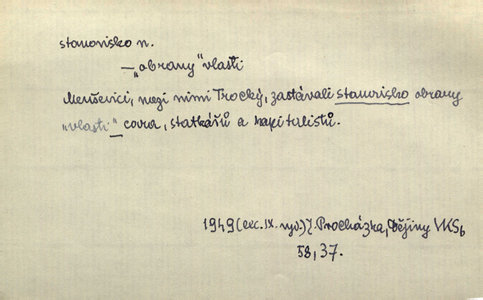 stanovisko n.
— „obrany" vlasti
Menševici, mezi nimi Trocký, zastávali stanovisko obrany
„vlasti" cara, statkářů a kapitalistů.
1949 (lic. IX. vyd.) J. Procházka, Dějiny VKSb
58, 37.